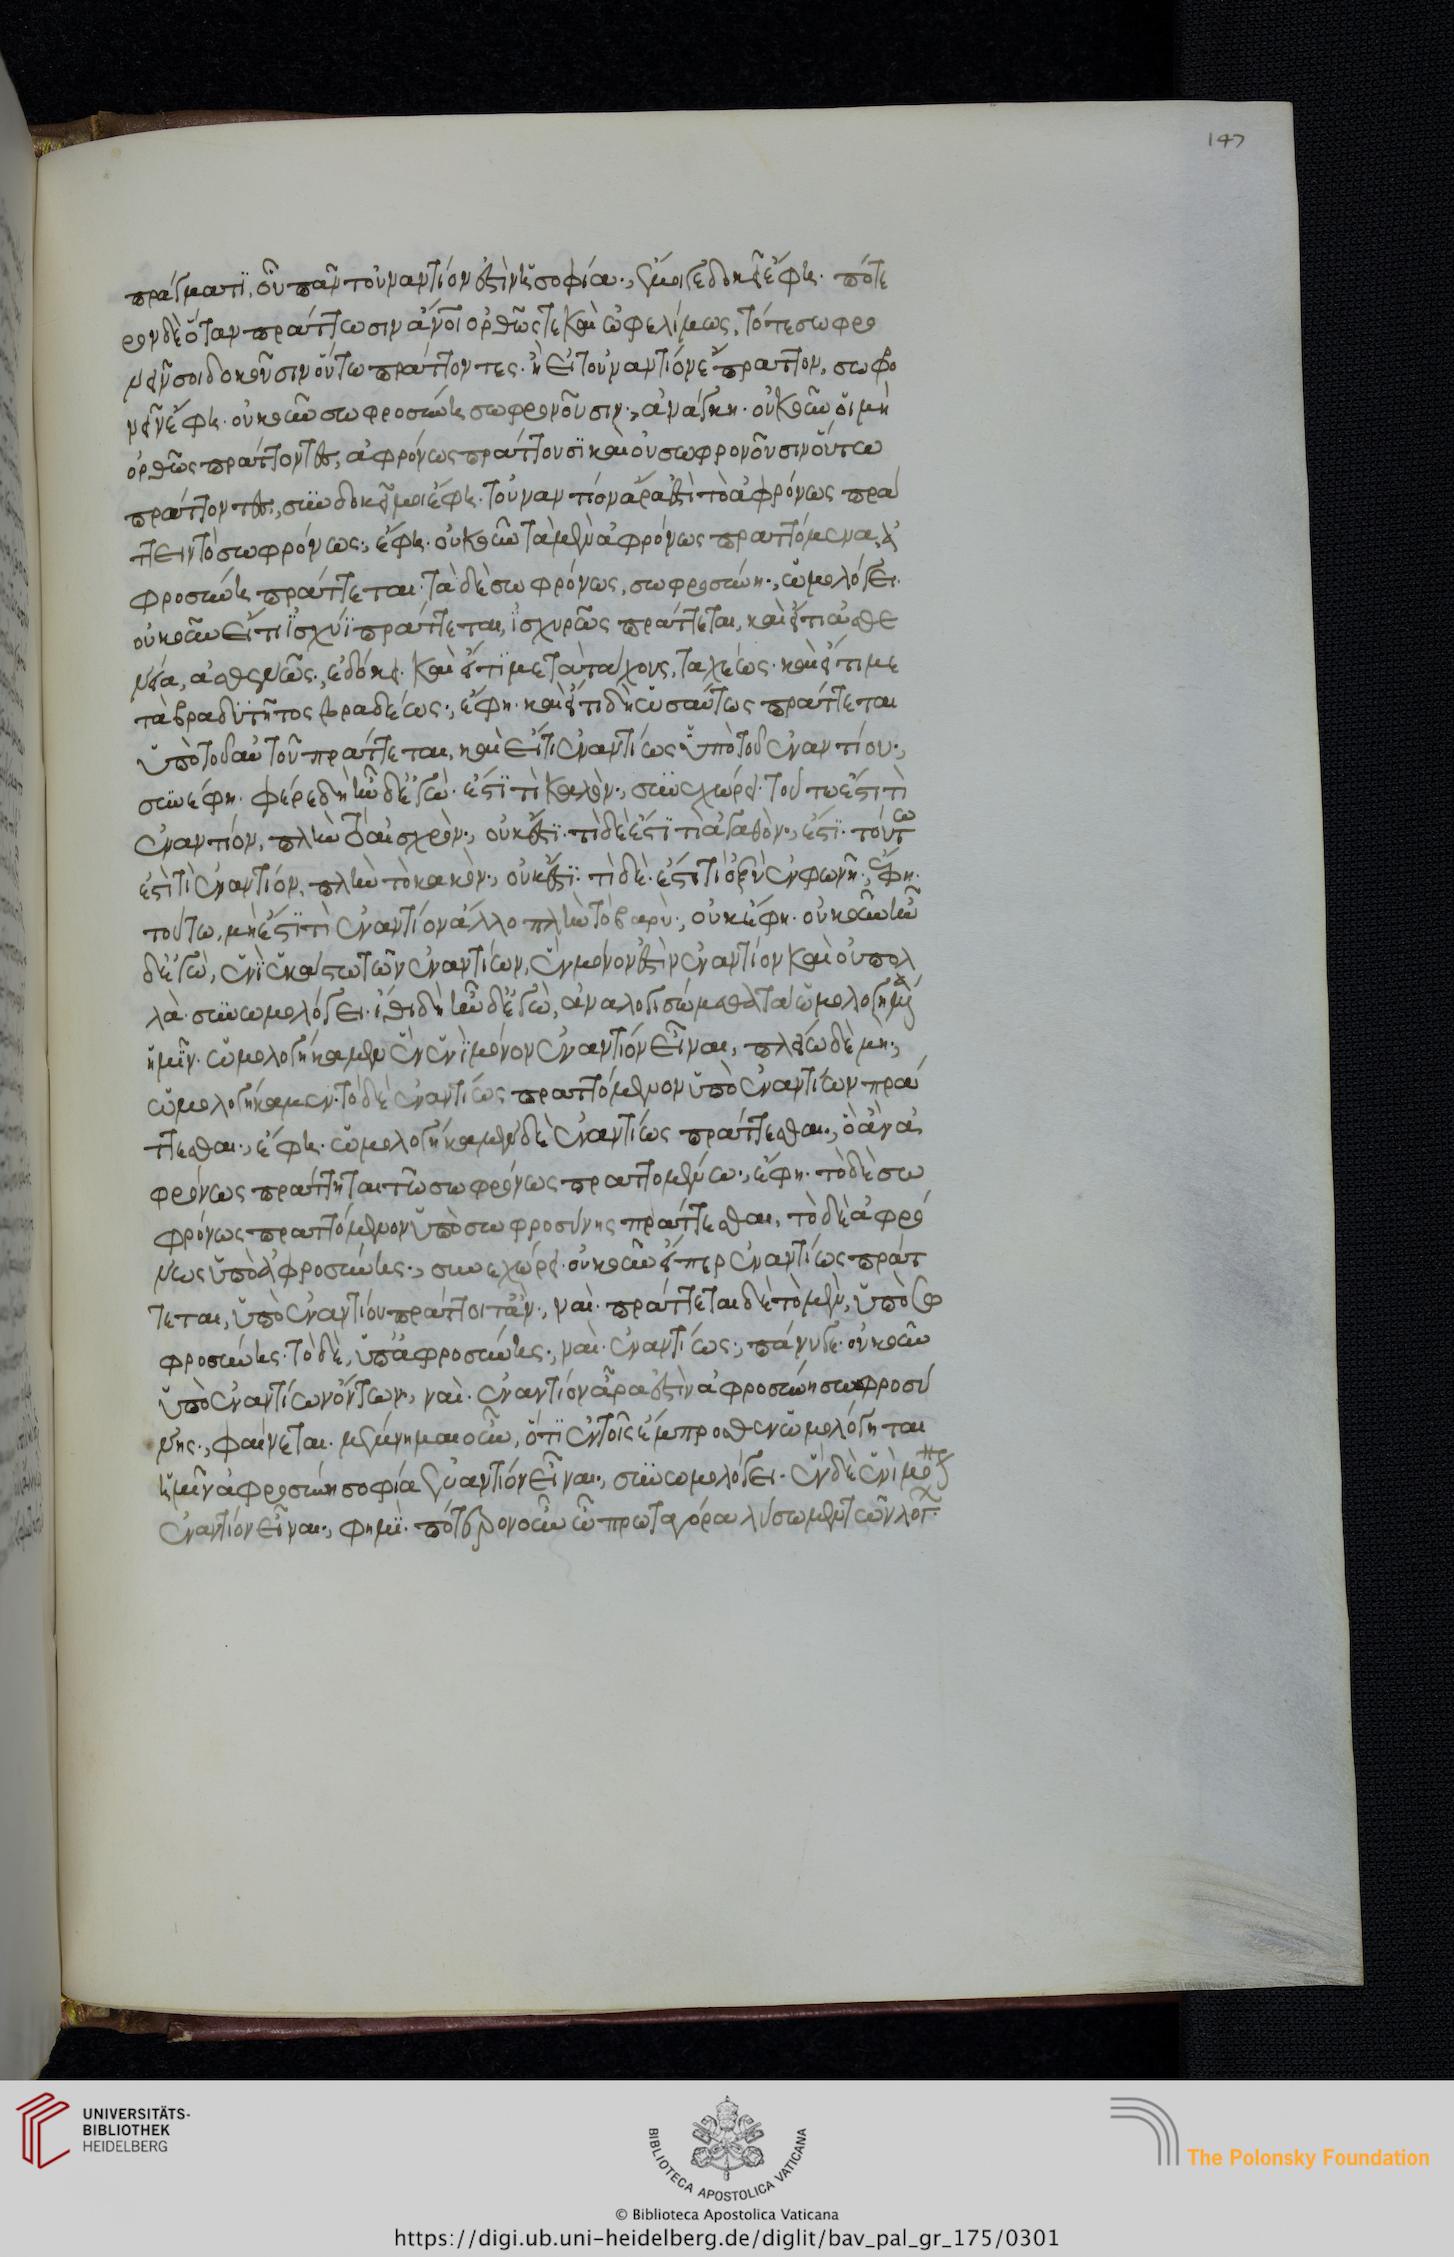 πράγματι, οὐ πᾶν τοὐναντίον ἐστὶν ἡ σοφία·, ἔμοιγε δοκεῖ ἔφη. πότε
ρον δὲ ὅταν πράττωσιν ἄνοι ὀρθῶς τε καὶ ὠφελίμως, τότε σωφρο
νεῖν σοι δοκοῦσιν οὕτω πράττοντες. ἢ εἰ τοὐναντίον ἔπραττον, σωφρο
νεῖν ἔφη. οὐκοῦν σωφροσύνη σωφρονοῦσιν·, ἀνάγκη. οὐκοῦν οἱ μὴ
ὀρθῶς πράττοντες, ἀφρόνως πράττουσϊ καὶ οὐ σωφρονοῦσιν οὕτω
πράττοντες·, συνδοκεῖ μοι ἔφη. τοὐναντίον ἄρα ἐστὶ τὸ ἀφρόνως πρά
ττειν τὸ σωφρόνως·, ἔφη. οὐκοῦν τὰ μὲν ἀφρόνως πραττόμενα, ἀ
φροσύνη πράττεται. τὰ δὲ σωφρόνως, σωφροσύνη·, ὡμολόγει.
οὐκοῦν εἴ τι ἰσχύϊ πράττεται, ἰσχυρῶς πράττεται, καὶ εἴ τι ἀσθε
νεία, ἀσθενῶς·, ἐδόκει. καὶ εἴ τϊ μετὰ τάχους, ταχέως. καὶ εἴ τι με
τὰ βραδυτῆτος βραδέως·, ἔφη. καὶ εἴ τι δὴ ὡσαύτως πράττεται
ὑπὸ τοῦ αὐτοῦ πράττεται, καὶ εἴ τι ἐναντίως ὑπὸ τοῦ ἐναντίου·,
συνέφη. φέρε δὴ ἦν δ' ἐγώ. ἔστϊ τὶ καλὸν·, συνεχώρει. τούτω ἔστι τὶ
ἐναντίον, πλὴν τὸ αἰσχρὸν·, οὐκ ἔστϊ. τὶ δὲ ἔστϊ τὶ ἀγαθὸν·, ἔστϊ. τούτω
ἔστὶ τὶ ἐναντίον, πλὴν τὸ κακὸν·, οὐκ ἔστϊ. τὶ δὲ. ἔστι τὶ ὀξὺ ἐν φωνῆ·, ἔφη.
τούτω, μὴ ἔστϊ τὶ ἐναντίον ἄλλο πλὴν τὸ βαρὺ·, οὐκ ἔφη. οὐκοῦν ἦν
δ' ἐγὼ, ἑνϊ ἑκάστω τῶν ἐναντίων, ἓν μόνον ἐστὶν ἐναντίον καὶ οὐ πολ
λὰ. συνωμολόγει. ἴθι δὴ ἦν δ' ἐγὼ, ἀναλογισώμεθα τὰ ὡμολογημένα
ἡμῖν. ὡμολογήκαμεν ἓν ἑνϊ μόνον ἐναντίον εἶναι, πλείω δὲ μὴ·,
ὡμολογήκαμεν. τὸ δὲ ἐναντίως πραττόμενον ὑπὸ ἐναντίων πρά
ττεσθαι·, ἔφη. ὡμολογήκαμεν δὲ ἐναντίως πράττεσθαι·, ὃ ἂν ἀ
φρόνως πράττηται τῶ σωφρόνως πραττομένω·, ἔφη. τὸ δὲ σω
φρόνως πραττόμενον ὑπὸ σωφροσύνης πράττεσθαι, τὸ δὲ ἀφρό
νως ὑπὸ ἀφροσύνης·, συνεχώρει. οὐκοῦν εἴπερ ἐναντίως πράτ
τεται, ὑπὸ ἐναντίου πράττοιτ' ἄν·, ναὶ. πράττεται δὲ τὸ μὲν, ὑπὸ σω
φροσύνης. τὸ δὲ, ὑπ' ἀφροσύνης·, ναὶ. ἐναντίως·, πάνυ γε. οὐκοῦν
ὑπὸ ἐναντίων ὄντων·, ναὶ. ἐναντίον ἄρα ἐστὶν ἀφροσύνη σωφροσύ
νης·, φαίνεται. μέμνημαι οὖν, ὅτϊ ἐν τοῖς ἔμπροσθεν ὡμολόγηται
ἡμῖν ἀφροσύνη σοφία ἐναντίον εἶναι·, συνωμολόγει. ἓν δὲ ἑνὶ μόνον
ἐναντίον εἶναι·, φημϊ. πότερον οὖν ὦ πρωταγόρα λύσωμεν τῶν λόγ
147
UNIVERSITÄTS-
BIBLIOTHEK
HEIDELBERG
BIBLIOTECA APOSTOLICA VATICANA
© Biblioteca Apostolica Vaticana
The Polonsky Foundation
https://digi.ub.uni-heidelberg.de/diglit/bav_pal_gr_175/0301